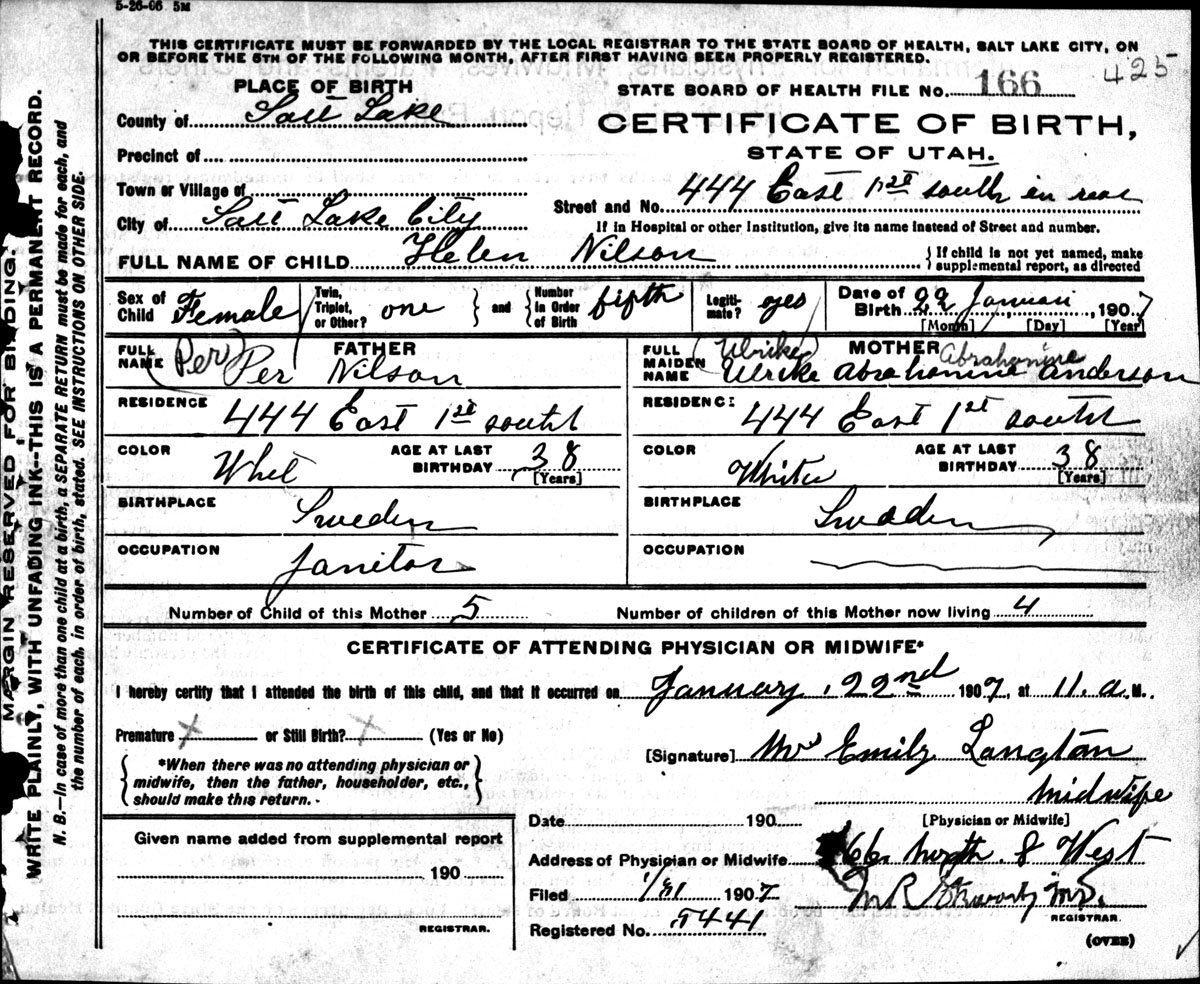 5-26-06 5M
THIS CERTIFICATE MUST BE FORWARDED BY THE LOCAL REGISTRAR TO THE STATE BOARD OF HEALTH, SALT LAKE CITY, ON
OR BEFORE THE 5TH OF THE FOLLOWING MONTH, AFTER FIRST HAVING BEEN PROPERLY REGISTERED.
425
PLACE OF BIRTH
STATE BOARD OF HEALTH FILE No. 166
County of Salt Lake
CERTIFICATE OF BIRTH,
Precinct of
STATE OF UTAH.
Town or Village of
Street and No. 444 East 1st south in rear
City of Salt Lake City
If in Hospital or other Institution, give its name instead of Street and number.
FULL NAME OF CHILD Helen Nilson
{If child is not yet named, make
supplemental report, as directed
Sex of Child Female
Twin, Triplet, or Other? one
and
Number in Order of Birth fifth
Legiti- mate? yes
Date of Birth 22 Januari, 1907
[Month] [Day] [Year]
FATHER
FULL NAME (Per) Per Nilson
RESIDENCE 444 East 1st south
COLOR Whit
AGE AT LAST BIRTHDAY 38 [Years]
BIRTHPLACE Sweden
OCCUPATION Janitor
MOTHER
FULL MAIDEN NAME (Ulrike) Abrahamine
Ulrike Abrahamine Anderson
RESIDENCE 444 East 1st south
COLOR White
AGE AT LAST BIRTHDAY 38 [Years]
BIRTHPLACE Swaden
OCCUPATION
Number of Child of this Mother 5
Number of children of this Mother now living 4
CERTIFICATE OF ATTENDING PHYSICIAN OR MIDWIFE*
I hereby certify that I attended the birth of this child, and that it occurred on January, 22nd 1907, at 11. a M.
Premature x or Still Birth? x (Yes or No)
{*When there was no attending physician or
midwife, then the father, householder, etc.,
should make this return.}
[Signature] Mrs Emily Langton
Midwife
[Physician or Midwife]
Date 190
Address of Physician or Midwife 66 north. 8 West
Filed 1/31 1907
REGISTRAR.
Registered No. 5441
(OVER)
Given name added from supplemental report
190
REGISTRAR.
MARGIN RESERVED FOR BINDING.
WRITE PLAINLY, WITH UNFADING INK--THIS IS A PERMANENT RECORD.
N. B.--In case of more than one child at a birth, a SEPARATE RETURN must be made for each, and
the number of each, in order of birth, stated. SEE INSTRUCTIONS ON OTHER SIDE.